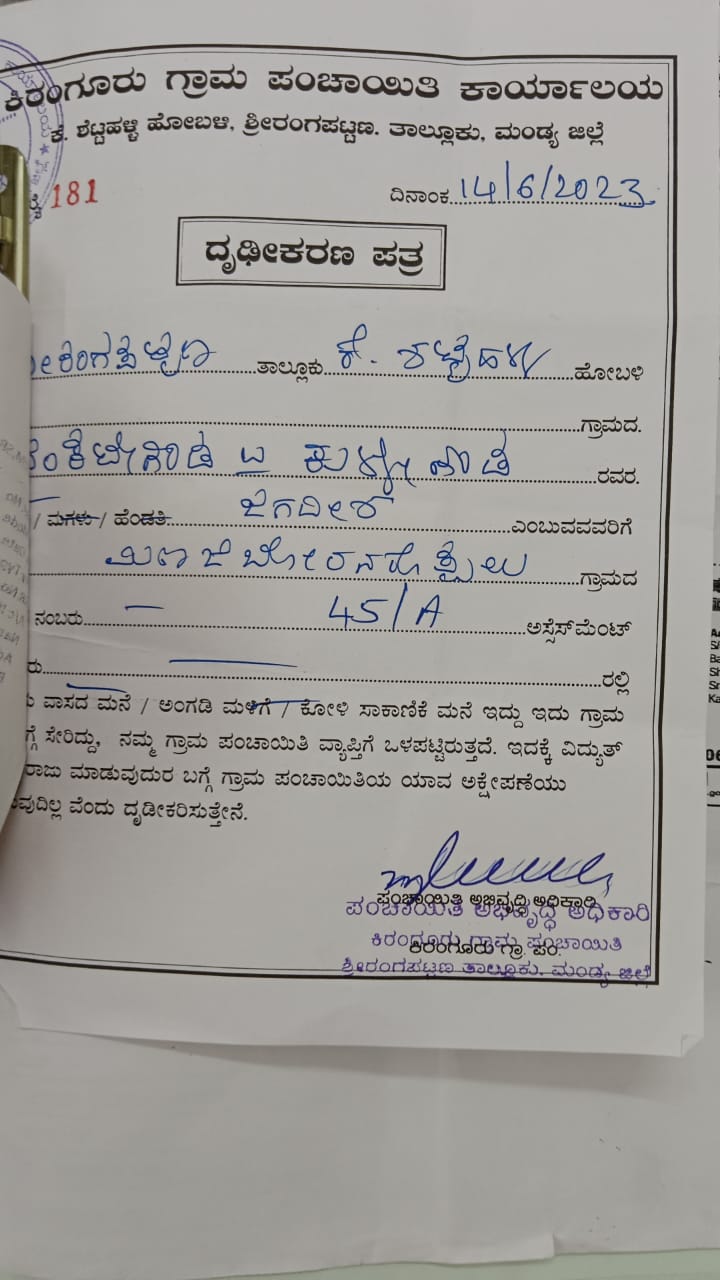 ಕಿರಂಗೂರು ಗ್ರಾಮ ಪಂಚಾಯಿತಿ ಕಾರ್ಯಾಲಯ
ಕೆ. ಶೆಟ್ಟಹಳ್ಳಿ ಹೋಬಳಿ, ಶ್ರೀರಂಗಪಟ್ಟಣ. ತಾಲ್ಲೂಕು, ಮಂಡ್ಯ ಜಿಲ್ಲೆ
181 ದಿನಾಂಕ 14/6/2023
ದೃಢೀಕರಣ ಪತ್ರ
ತಾಲ್ಲೂಕು ಕೆ. ಶೆಟ್ಟಹಳ್ಳಿ ಹೋಬಳಿ
ಗ್ರಾಮದ.
ರವರ.
/ ಮಗಳು / ಹೆಂಡತಿ ಜಗದೀಶ ಎಂಬುವವವರಿಗೆ
ಗ್ರಾಮದ
ನಂಬರು — 45/A ಅಸ್ಸೆಸ್‌ಮೆಂಟ್
ರು ರಲ್ಲಿ
ವಾಸದ ಮನೆ / ಅಂಗಡಿ ಮಳಿಗೆ / ಕೋಳಿ ಸಾಕಾಣಿಕೆ ಮನೆ ಇದ್ದು ಇದು ಗ್ರಾಮ
ಗ್ಗೆ ಸೇರಿದ್ದು, ನಮ್ಮ ಗ್ರಾಮ ಪಂಚಾಯಿತಿ ವ್ಯಾಪ್ತಿಗೆ ಒಳಪಟ್ಟಿರುತ್ತದೆ. ಇದಕ್ಕೆ ವಿದ್ಯುತ್
ರಾಜು ಮಾಡುವುದುರ ಬಗ್ಗೆ ಗ್ರಾಮ ಪಂಚಾಯಿತಿಯ ಯಾವ ಅಕ್ಷೇಪಣೆಯು
ವುದಿಲ್ಲ ವೆಂದು ದೃಡೀಕರಿಸುತ್ತೇನೆ.
ಪಂಚಾಯಿತಿ ಅಭಿವೃದ್ಧಿ ಅಧಿಕಾರಿ
ಪಂಚಾಯಿತಿ ಅಭಿವೃದ್ಧಿ ಅಧಿಕಾರಿ
ಕಿರಂಗೂರು ಗ್ರಾಮ ಪಂಚಾಯಿತಿ
ಕಿರಂಗೂರು ಗ್ರಾ. ಪಂ.
ಶ್ರೀರಂಗಪಟ್ಟಣ ತಾಲ್ಲೂಕು, ಮಂಡ್ಯ ಜಿಲ್ಲೆ